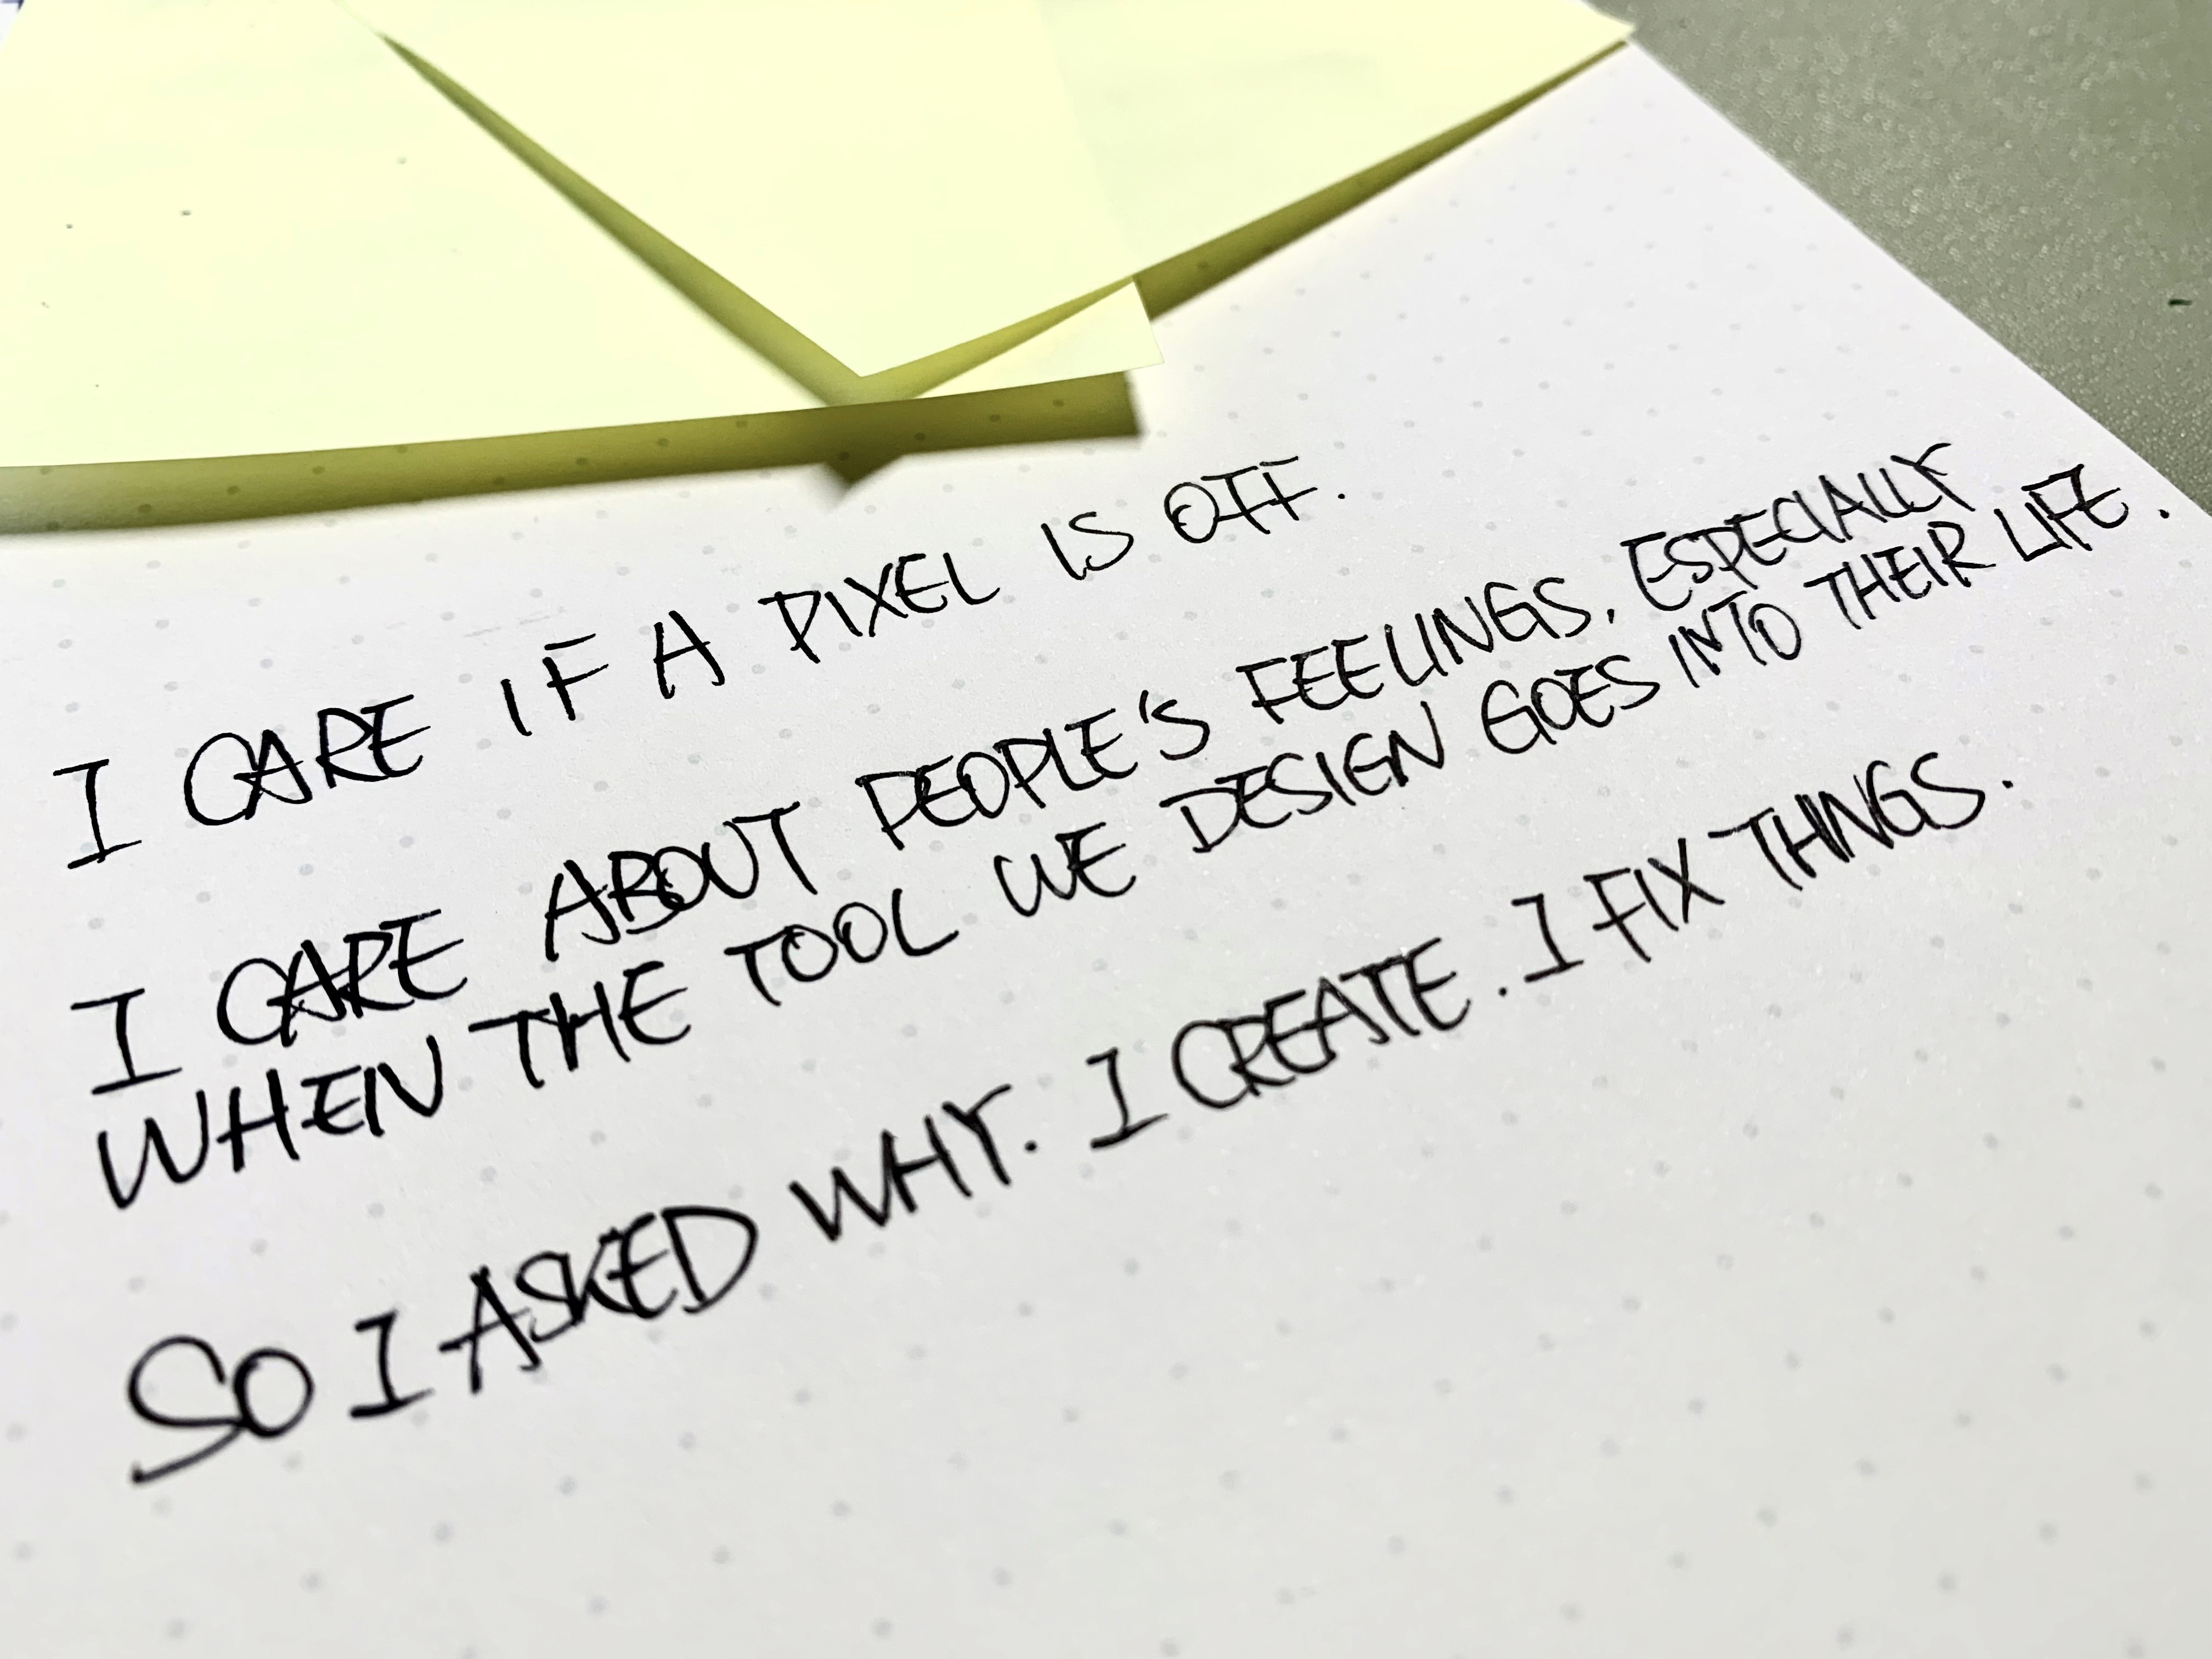 I CARE IF A PIXEL IS OFF.
I CARE ABOUT PEOPLE'S FEELINGS, ESPECIALLY
WHEN THE TOOL WE DESIGN GOES INTO THEIR LIFE.
SO I ASKED WHY. I CREATE. I FIX THINGS.